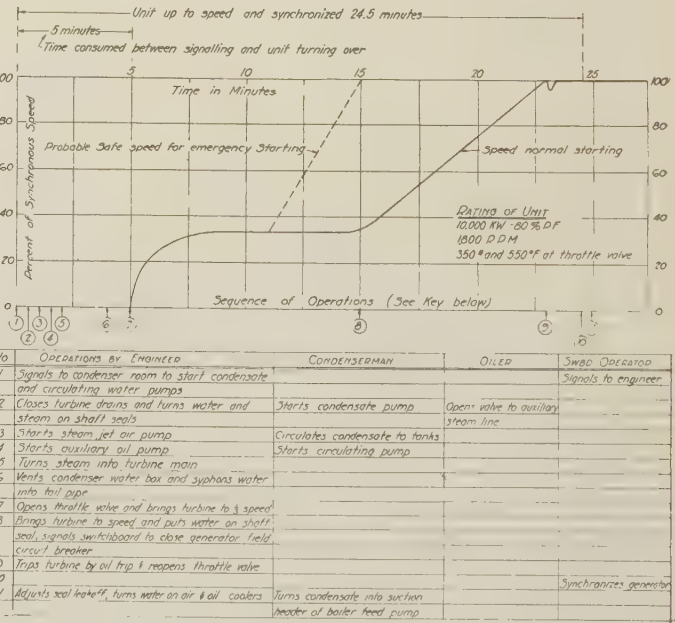 Unit up to speed and synchronized 24.5 minutes
5 minutes
Time consumed between signalling and unit turning over
5 10 15 20 25
Time in Minutes
100
80 80
60 60
40 40
20 20
0 0
Percent of Synchronous Speed
Probable Safe speed for emergency Starting
Speed normal starting
RATING OF UNIT
10,000 KW - 80 % P F
1800 R P M
350 # and 550°F at throttle valve
Sequence of Operations (See Key below)
1 2 3 4 5 6 8 9
OPERATIONS BY ENGINEER CONDENSERMAN OILER SWBD OPERATOR
Signals to condenser room to start condensate Signals to engineer
and circulating water pumps
2 Closes turbine drains and turns water and Starts condensate pump Opens valve to auxiliary
steam on shaft seals steam line
3 Starts steam jet air pump Circulates condensate to tanks
4 Starts auxiliary oil pump Starts circulating pump
5 Turns steam into turbine main
6 Vents condenser water box and syphons water
into tail pipe
7 Opens throttle valve and brings turbine to speed
8 Brings turbine to speed and puts water on shaft
seal, signals switchboard to close generator field
circuit breaker
Trips turbine by oil trip & reopens throttle valve
Synchronizes generator
Adjusts seal leakoff, turns water on air & oil coolers Turns condensate into suction
header of boiler feed pump